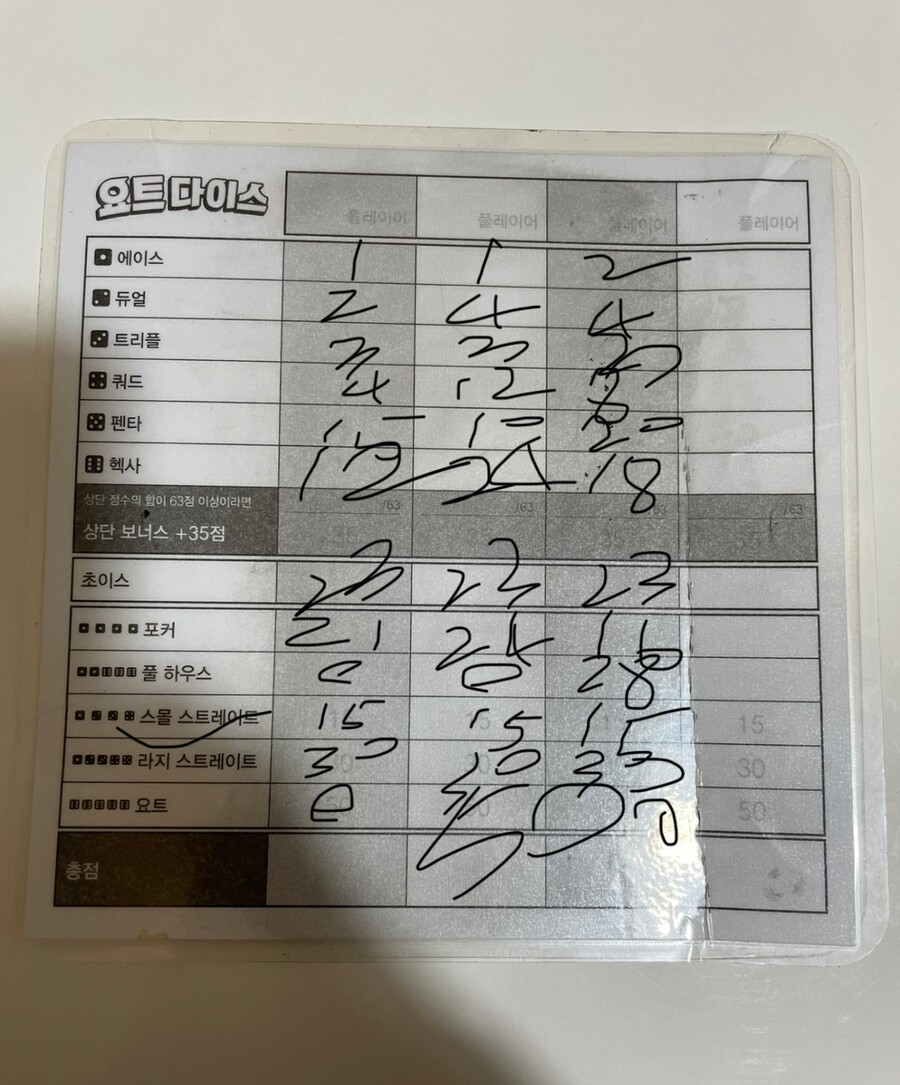 요트다이스
플레이어 플레이어 플레이어 플레이어
에이스 1 1 2
듀얼 2 4 4
트리플 3 3
쿼드 4 12
펜타 15 10 20
헥사 12 24 18
상단 점수의 합이 63점 이상이라면 /63 /63 /63 /63
상단 보너스 +35점
초이스 23 23 23
포커 21 24 11
풀 하우스 0 0 28
스몰 스트레이트 15 15 15 15
라지 스트레이트 30 30 30
요트 0 50 0 50
총점